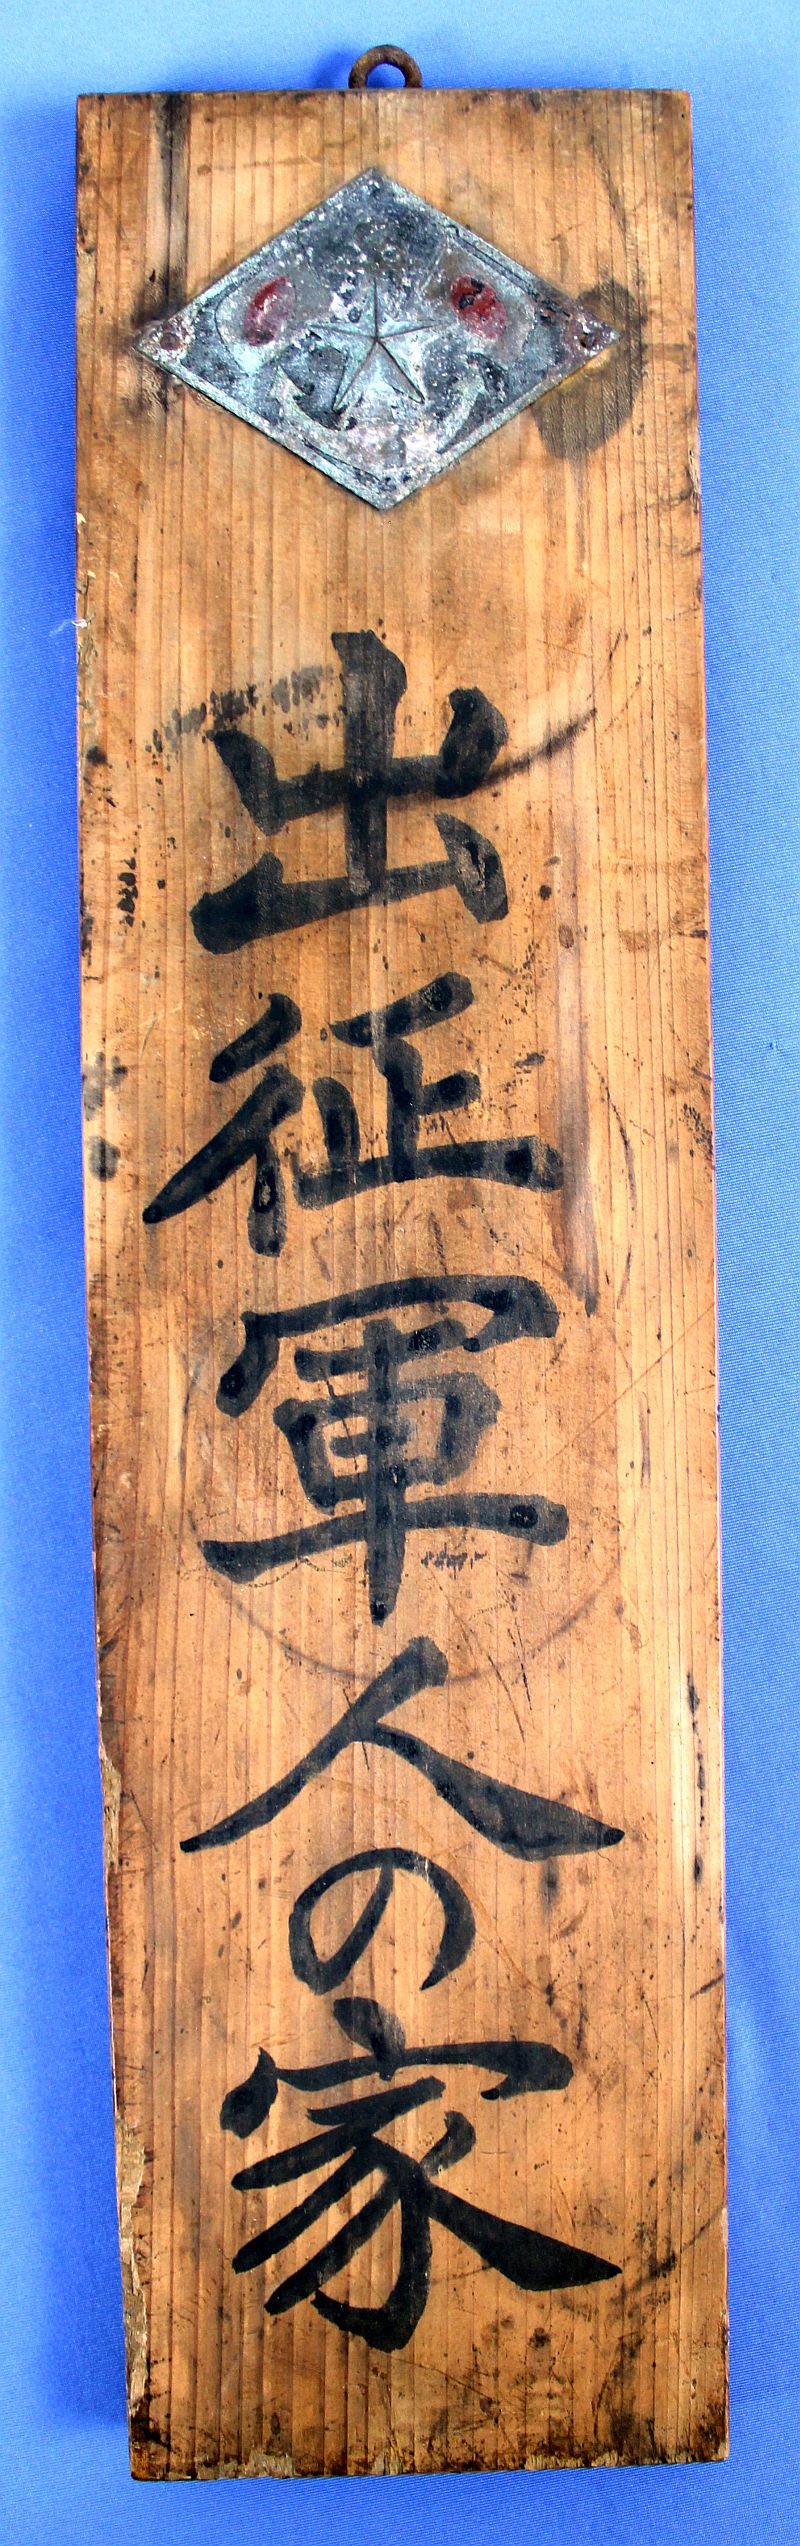 出征軍人の家